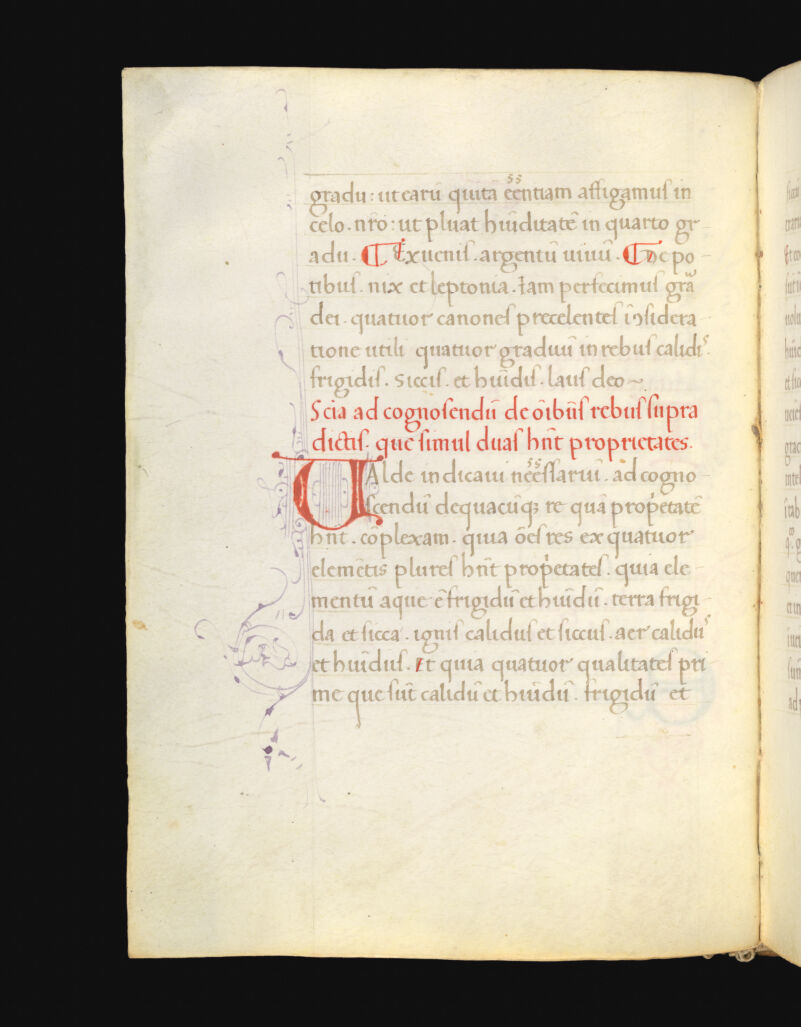 gradu: ut earū quītā eēntiam affigamus in
celo. nr̄o: ut pluat hūiditatē in quarto gr
adu. Ex uenis. argentū uiuū. De po
tibus. nix et leptonia. Iam perfecimus grā
dei. quatuor canones precelentes ī ↄsidera
tione utili quatuor graduū in rebus calidis
frigidis. siccis. et hūidis. laus deo ~
Scia ad cognosendū de oībus rebus supra
dictis. que simul duas hn̄t proprietates.
Valde indicaui neēssariū. ad cogno
scendū de quacūq; re quā propetatē
hn̄t. cōplexam. quia ōes res ex quatuor
elemētis plures hn̄t propetates. quia ele
mentū aque ē frigidū et hūidū. terra frigi
da et sicca. ignis calidus et siccus. aer calidus
et hūidus. Et quia quatuor qualitates pri
me que sūt calidū et hūidū. frigidū et